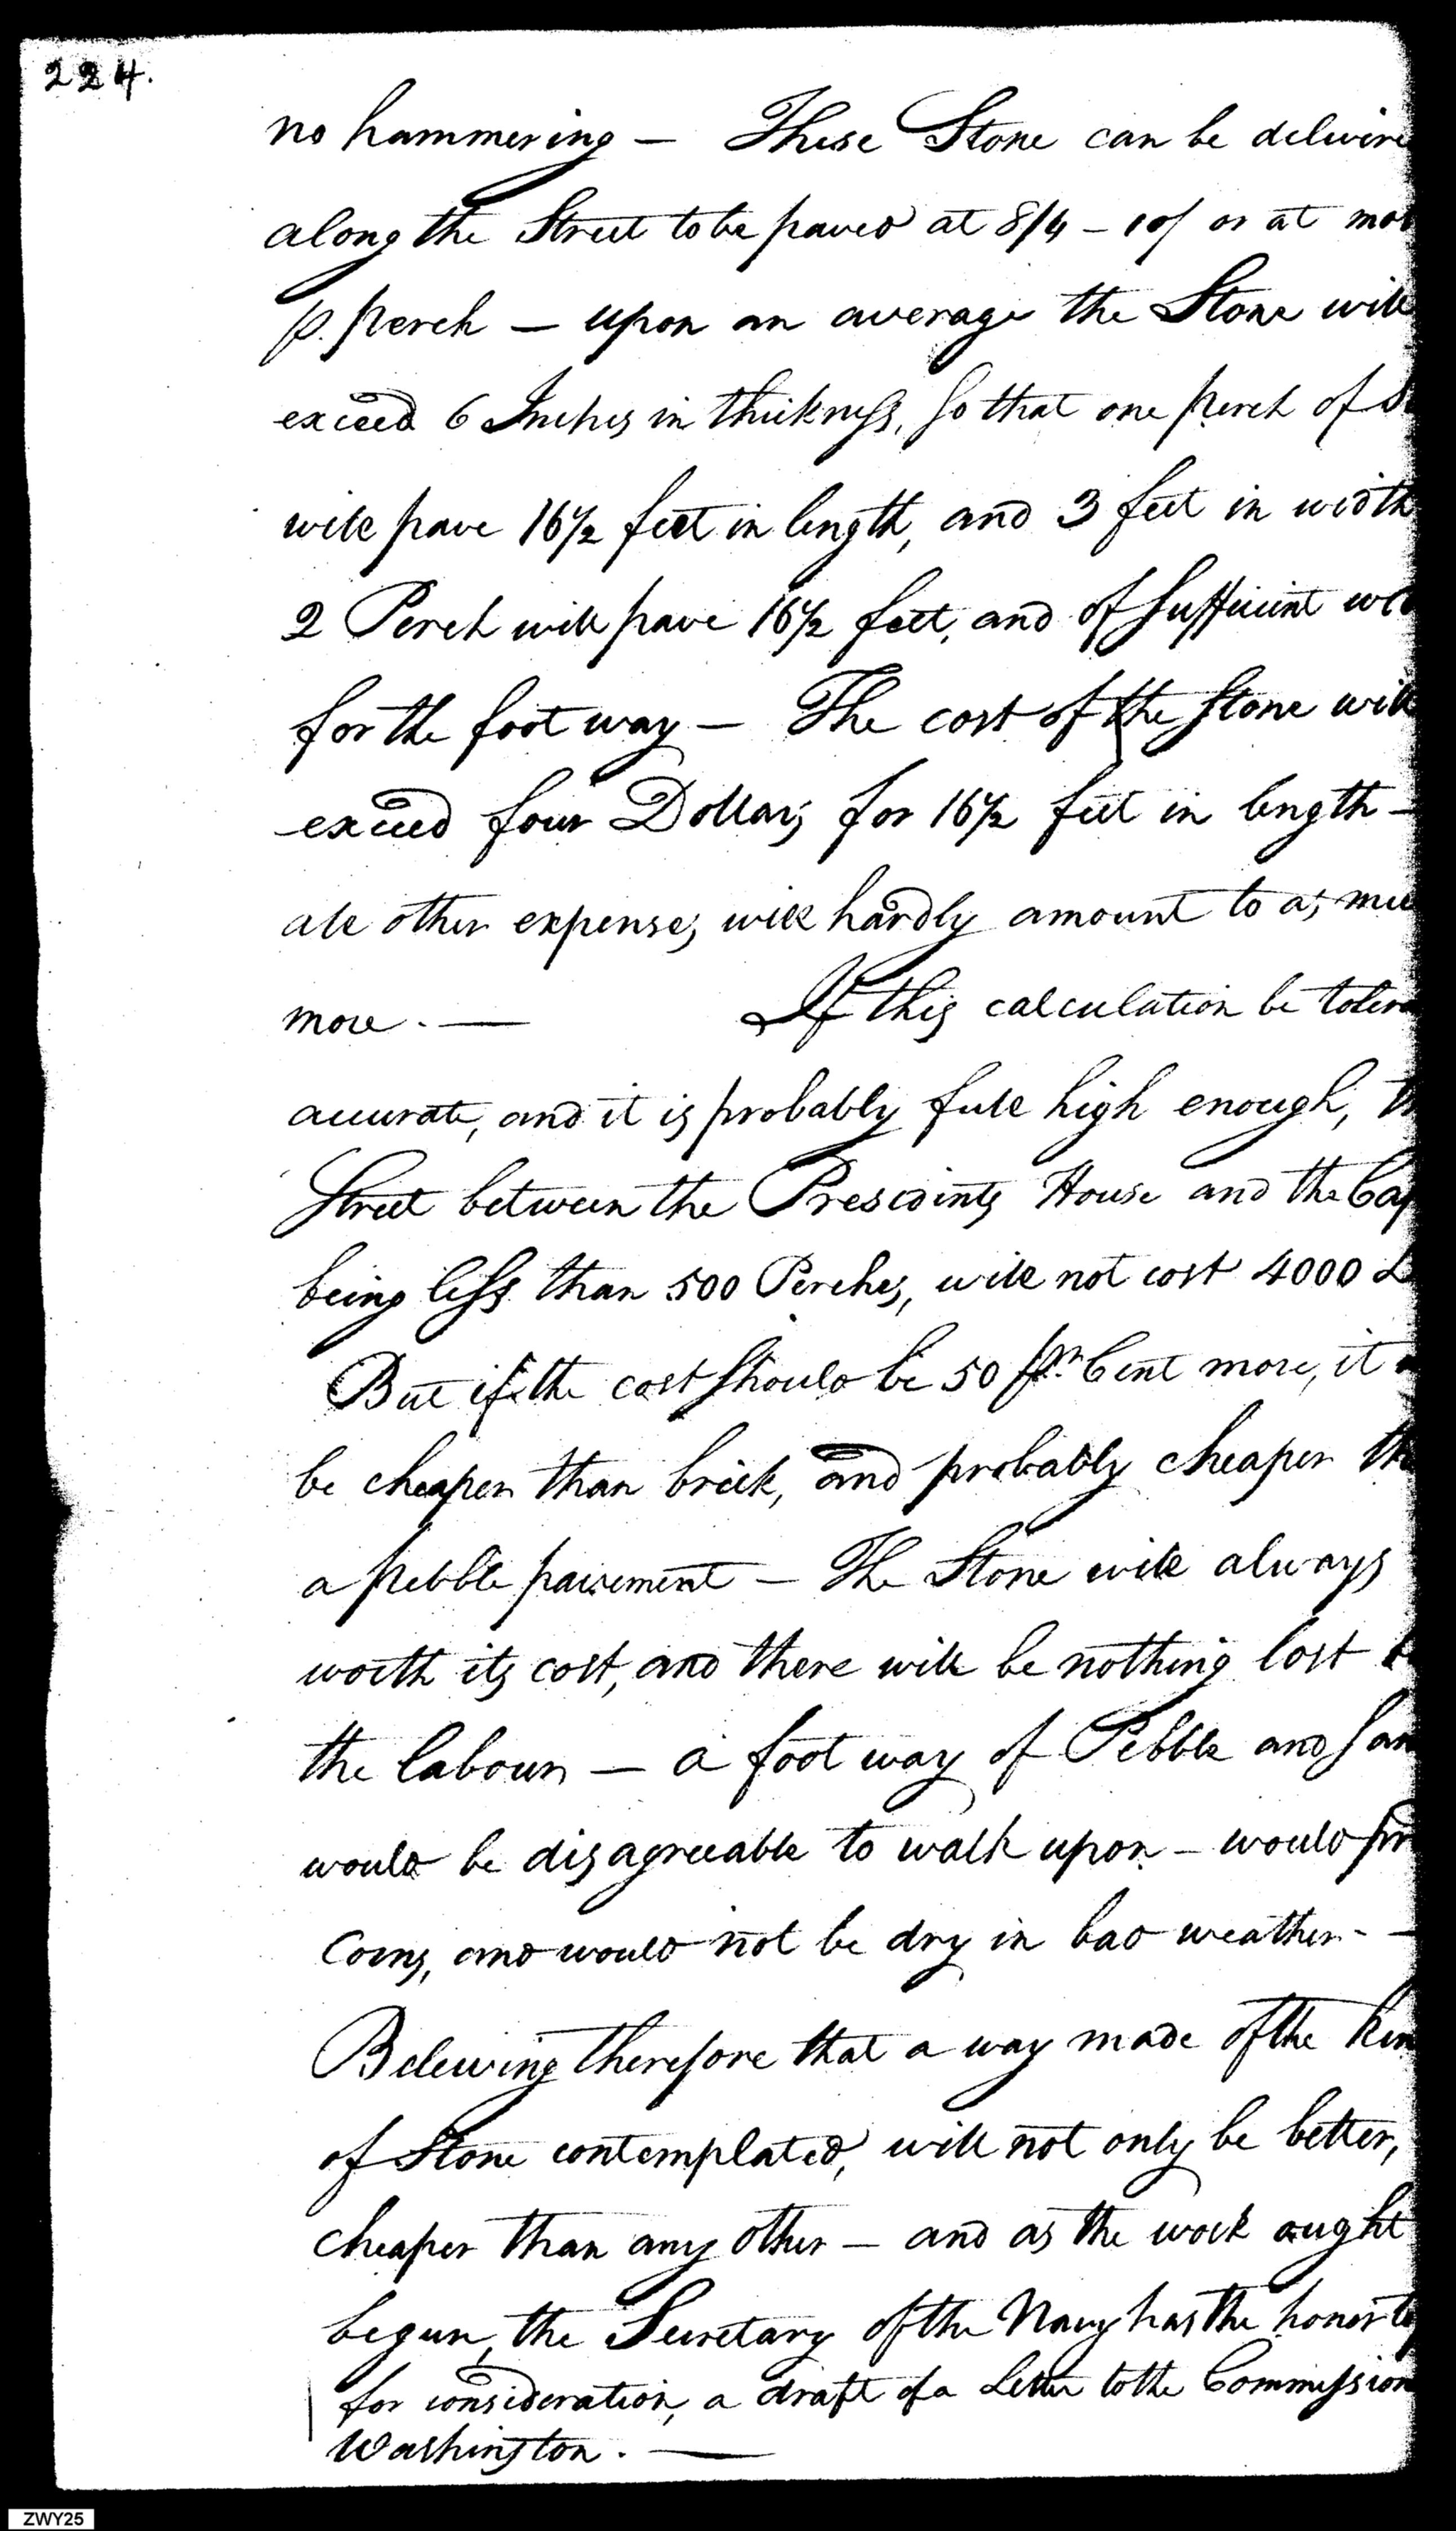 224.
no hammering — These Stone can be delivere
along the Street to be paved at 8/4 – 10/ or at mo
p. perch — upon an average the Stone will
exceed 6 Inches in thickness, so that one perch of S
will pave 16½ feet in length, and 3 feet in width
2 Perch will pave 16½ feet, and of sufficient wi
for the foot way — The cost of the stone will
exceed four Dollars for 16½ feet in length —
all other expenses will hardly amount to as mu
more. — If this calculation be tolera
accurate, and it is probably full high enough, th
Street between the Presidents House and the Cap
being less than 500 Perches, will not cost 4000 D
But if the cost should be 50 pr. Cent more, it
be cheaper than brick, and probably cheaper th
a pebble pavement — The Stone will always
worth its cost, and there will be nothing lost b
the labour — a foot way of Pebble and san
would be disagreeable to walk upon — would pro
Corns, and would not be dry in bad weather - —
Beleiving therefore that a way made of the kin
of Stone contemplated, will not only be better,
cheaper than any other — and as the work ought
begun, the Secretary of the Navy has the honor to
for consideration, a draft of a Letter to the Commission
Washington. —
ZWY25